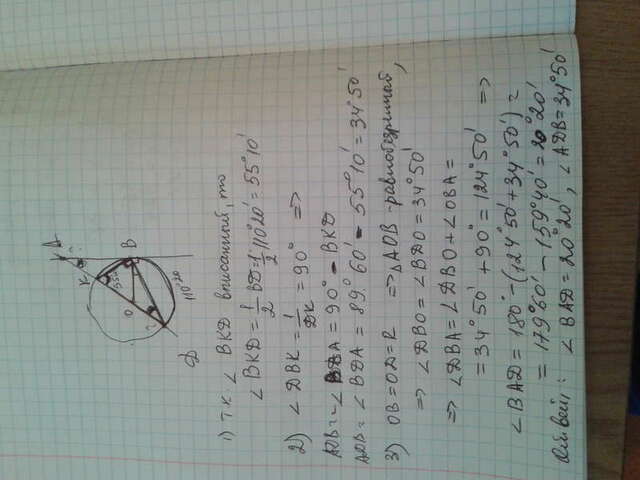 A
K
B
O
110°20'
D
1) т.к. ∠ BKD вписанный, то
∠ BKD = 1/2 BD = 1/2 · 110°20' = 55°10'
2) ∠ DBK = 1/2 DK = 90° =>
= ∠ BDA = 90° - BKD
ADB = ∠ BDA = 89°60' - 55°10' = 34°50'
3) OB = OD = R => △ AOB - равнобедренный,
=> ∠ DBO = ∠ BDO = 34°50'
=> ∠ DBA = ∠ DBO + ∠ OBA =
= 34°50' + 90° = 124°50' =>
∠ BAD = 180° - (124°50' + 34°50') =
= 179°60' - 159°40' = 20°20'
Ответ: ∠ BAD = 20°20', ∠ ADB = 34°50'